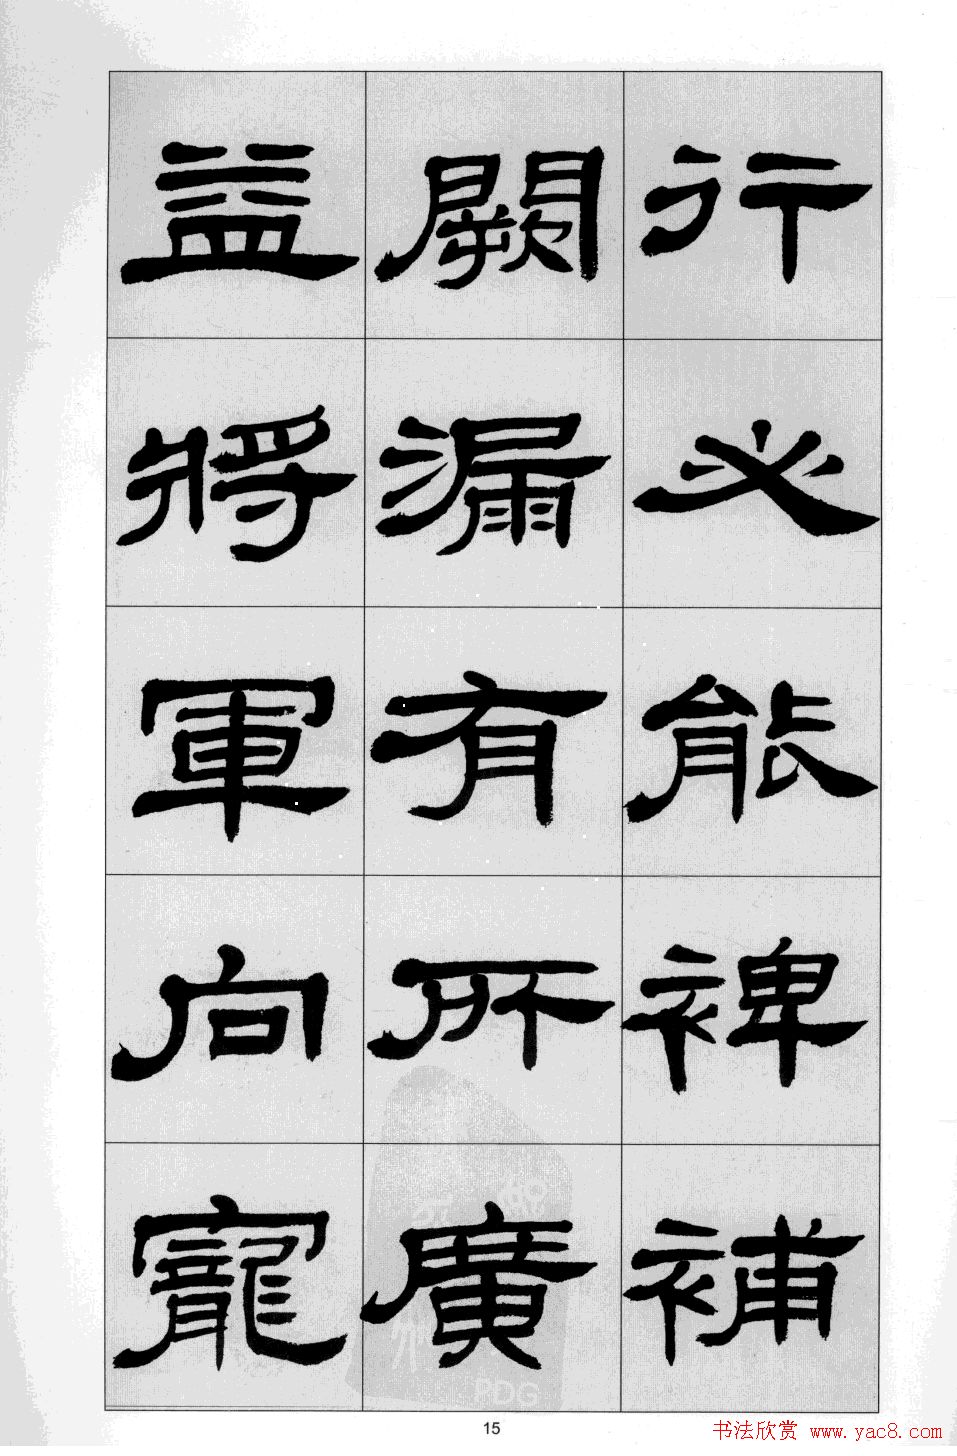 行必能裨補
闕漏有所廣
益將軍向寵
15
书法欣赏 www.yac8.com